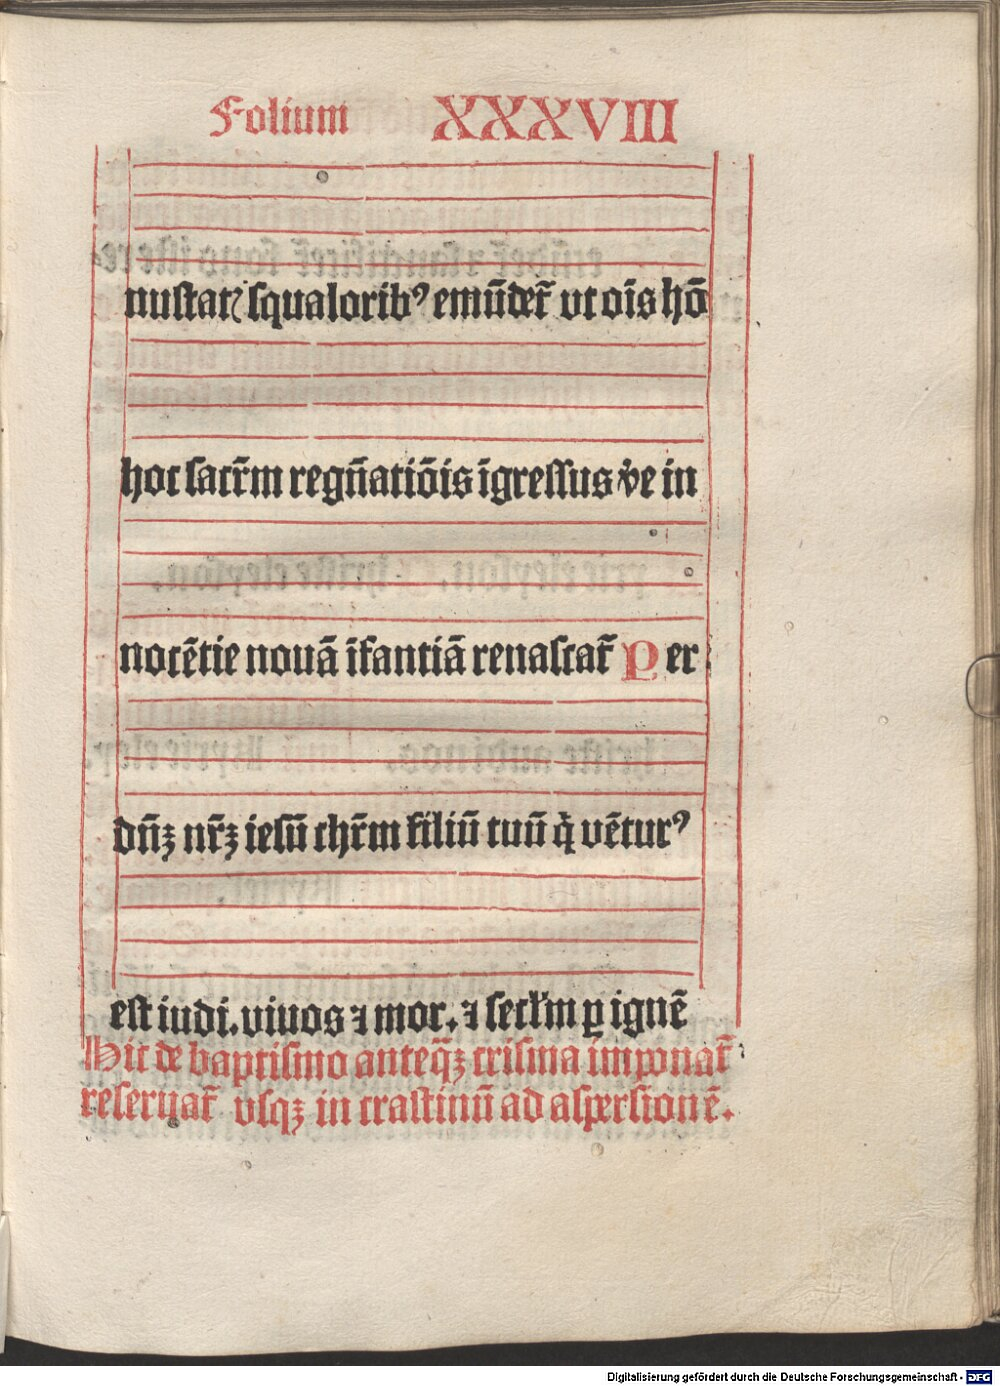 Folium XXXVIII
nustatꝭ squaloribꝰ emūdet᷑ vt oīs hō
hoc sacr̄m regn̄atiōis īgressus v̇e in
nocētie nouā īfantiā renascat᷑ Per
dn̄ꝫ nr̄ꝫ iesū chr̄m filiū tuū q̇ vētur⁹
est iudi. viuos ⁊ mor. ⁊ secl̄m ꝑ ignē
Hic de baptismo anteq̄ꝫ crisma imponat᷑
reseruat᷑ vsqꝫ in crastinū ad aspersionē.
Digitalisierung gefördert durch die Deutsche Forschungsgemeinschaft - DFG